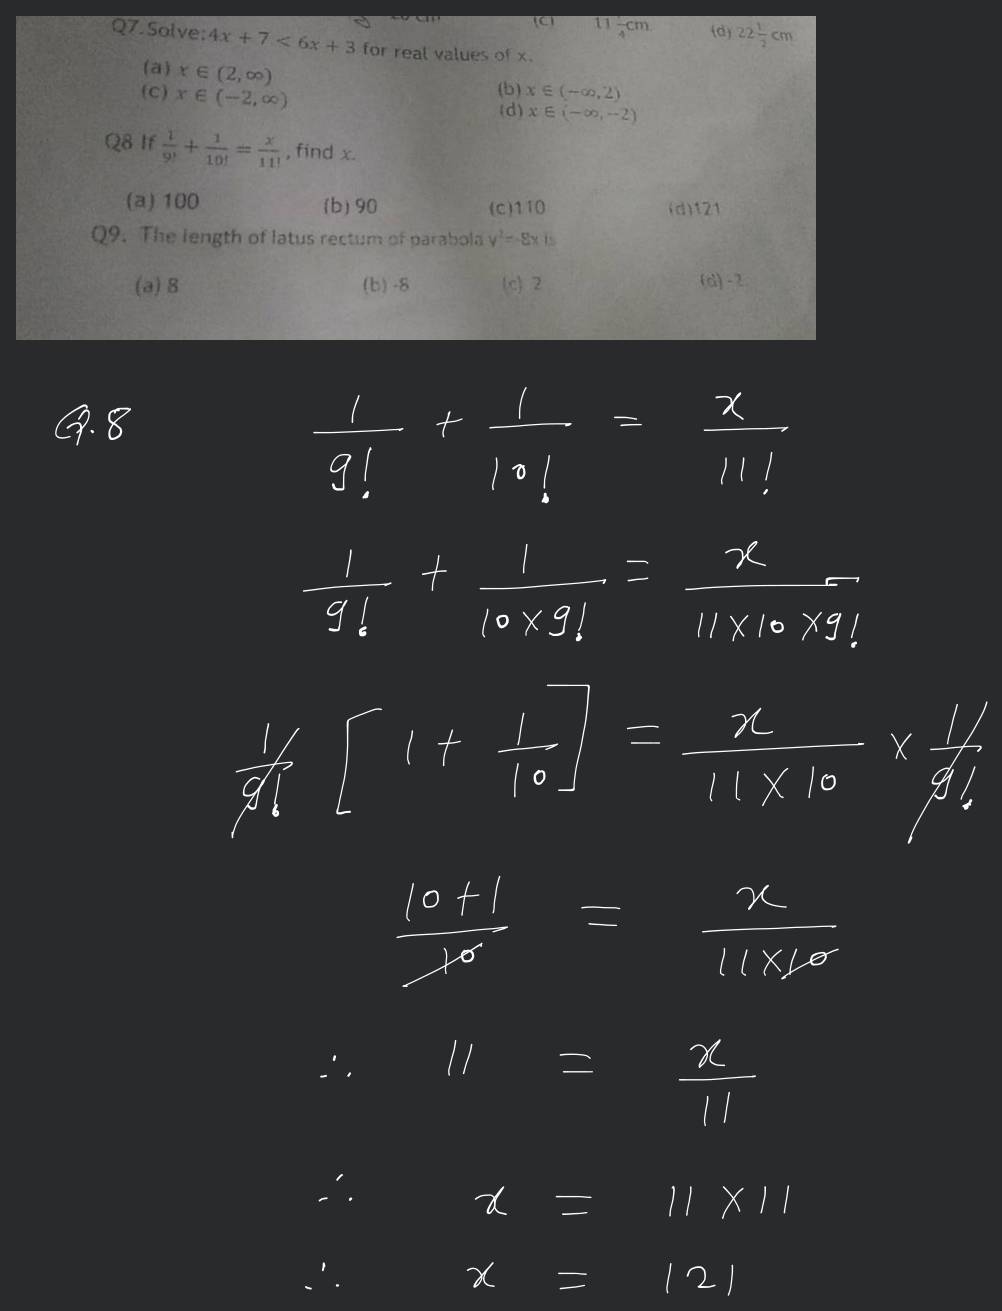 (c) 11 1/4 cm (d) 22 1/2 cm
Q7. Solve: 4x + 7 < 6x + 3 for real values of x.
(a) x ∈ (2, ∞) (b) x ∈ (−∞, 2)
(c) x ∈ (−2, ∞) (d) x ∈ (−∞, −2)
Q8 If 1/9! + 1/10! = x/11!, find x.
(a) 100 (b) 90 (c) 110 (d) 121
Q9. The length of latus rectum of parabola y²=-8x is
(a) 8 (b) -8 (c) 2 (d) -2
Q.8 1/9! + 1/10! = x/11!
1/9! + 1/10×9! = x/11×10×9!
1/9! [1 + 1/10] = x/11×10 × 1/9!
10+1/10 = x/11×10
∴ 11 = x/11
∴ x = 11×11
∴ x = 121